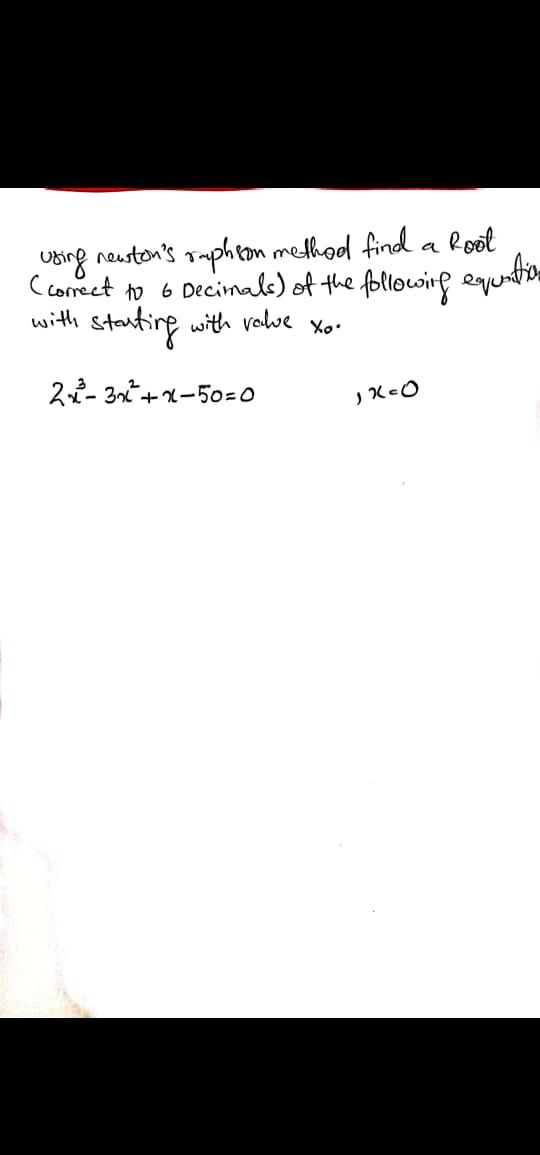 using newton's raphson method find a Root
(correct to 6 Decimals) of the following equation
with starting with value x₀.
2x³- 3x²+x-50=0 , x=0